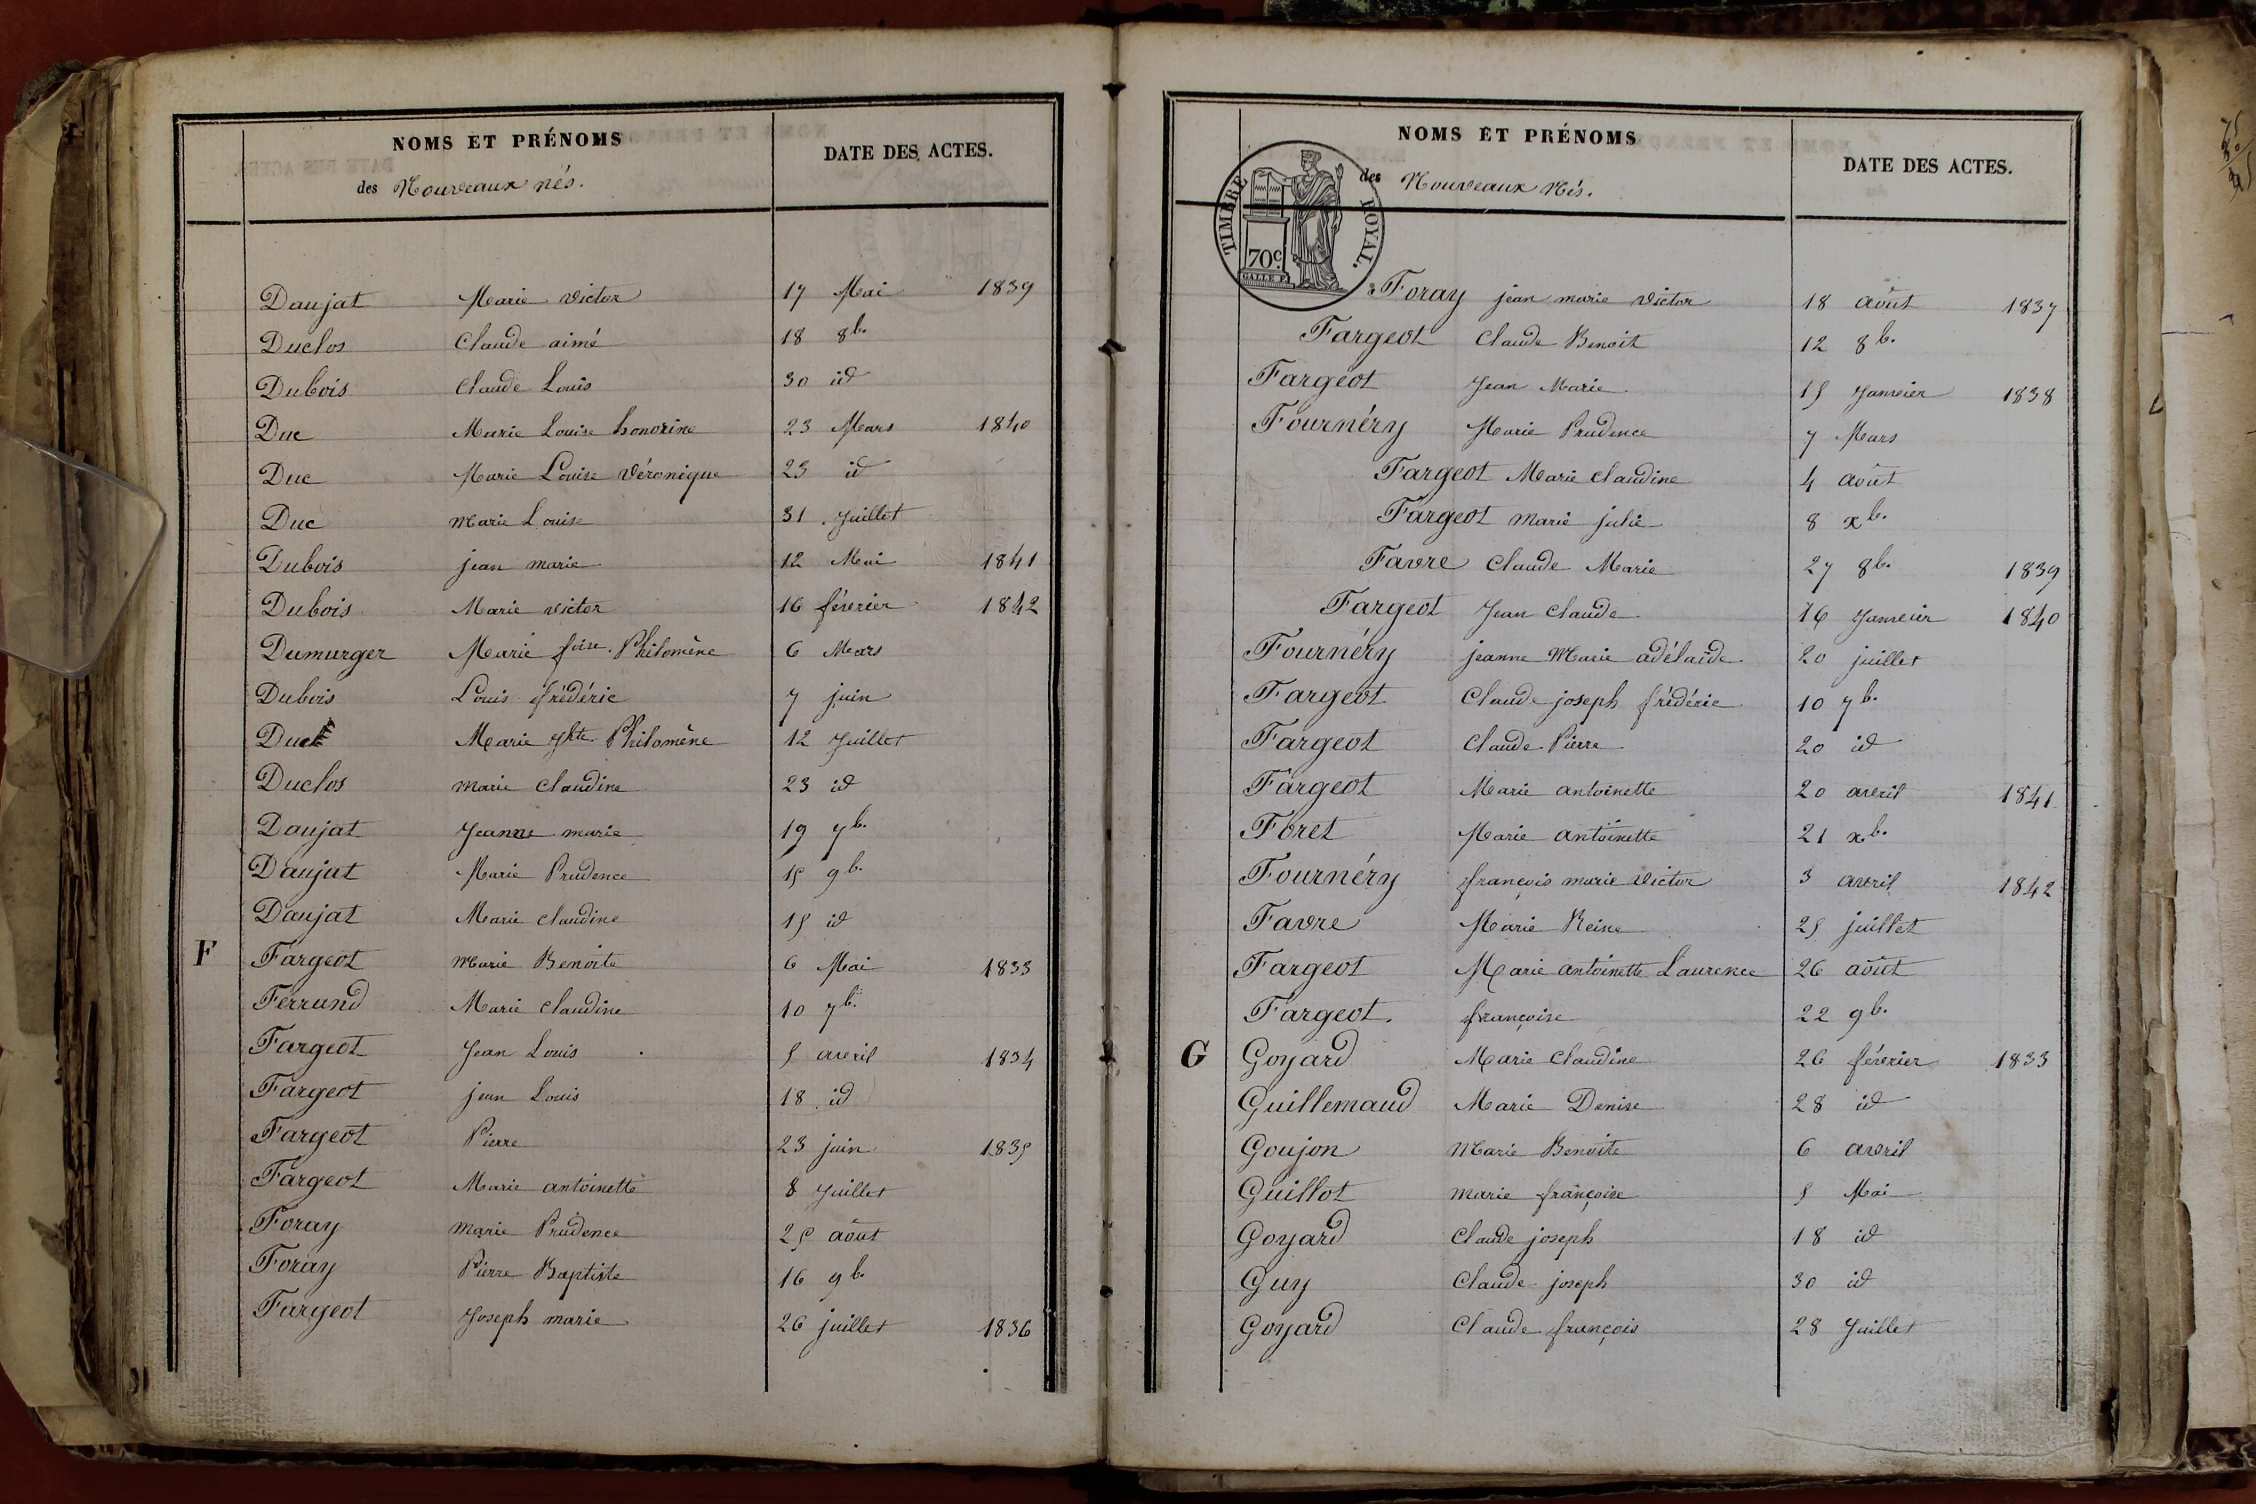 NOMS ET PRÉNOMS
des Nouveaux nés.
DATE DES ACTES.
Daujat Marie victor 17 Mai 1839
Duclos Claude aimé 18 8b.
Dubois Claude Louis 30 id
Duc Marie Louise honorine 23 Mars 1840
Duc Marie Louise Véronique 23 id
Duc Marie Louise 31 Juillet
Dubois jean marie 12 Mai 1841
Dubois Marie victor 16 février 1842
Dumurger Marie foise. Philomène 6 Mars
Dubois Louis frédéric 7 juin
Duc Marie Philomène 12 Juillet
Duclos marie claudine 23 id
Daujat Jeanne marie 19 7b.
Daujat Marie Prudence 15 9b.
Daujat Marie claudine 15 id
F Fargeot Marie Benoite 6 Mai 1833
Ferrand Marie claudine 10 7b.
Fargeot Jean Louis 5 avril 1834
Fargeot jean Louis 18 id
Fargeot Pierre 23 juin 1835
Fargeot Marie antoinette 8 Juillet
Foray marie Prudence 25 août
Foray Pierre Baptiste 16 9b.
Fargeot Joseph marie 26 juillet 1836
NOMS ET PRÉNOMS
des Nouveaux Nés.
DATE DES ACTES.
TIMBRE ROYAL.
70c.
Foray jean marie victor 18 août 1837
Fargeot Claude Benoit 12 8b.
Fargeot Jean Marie 15 Janvier 1838
Fournéry Marie Prudence 7 Mars
Fargeot Marie claudine 4 août
Fargeot marie julie 8 xb.
Favre Claude Marie 27 8b. 1839
Fargeot Jean Claude 16 Janvier 1840
Fournéry jeanne Marie adélaïde 20 juillet
Fargeot Claude joseph frédéric 10 7b.
Fargeot Claude Pierre 20 id
Fargeot Marie antoinette 20 avril 1841
Foret Marie antoinette 21 xb.
Fournéry françois marie victor 3 avril 1842
Favre Marie Reine 25 juillet
Fargeot Marie antoinette Laurence 26 août
Fargeot. françoise 22 9b.
G Goyard Marie Claudine 26 février 1833
Guillemaud Marie Denise 28 id
Goujon Marie Benoite 6 avril
Guillot marie françoise 5 Mai
Goyard Claude joseph 18 id
Guy Claude joseph 30 id
Goyard Claude françois 28 Juillet